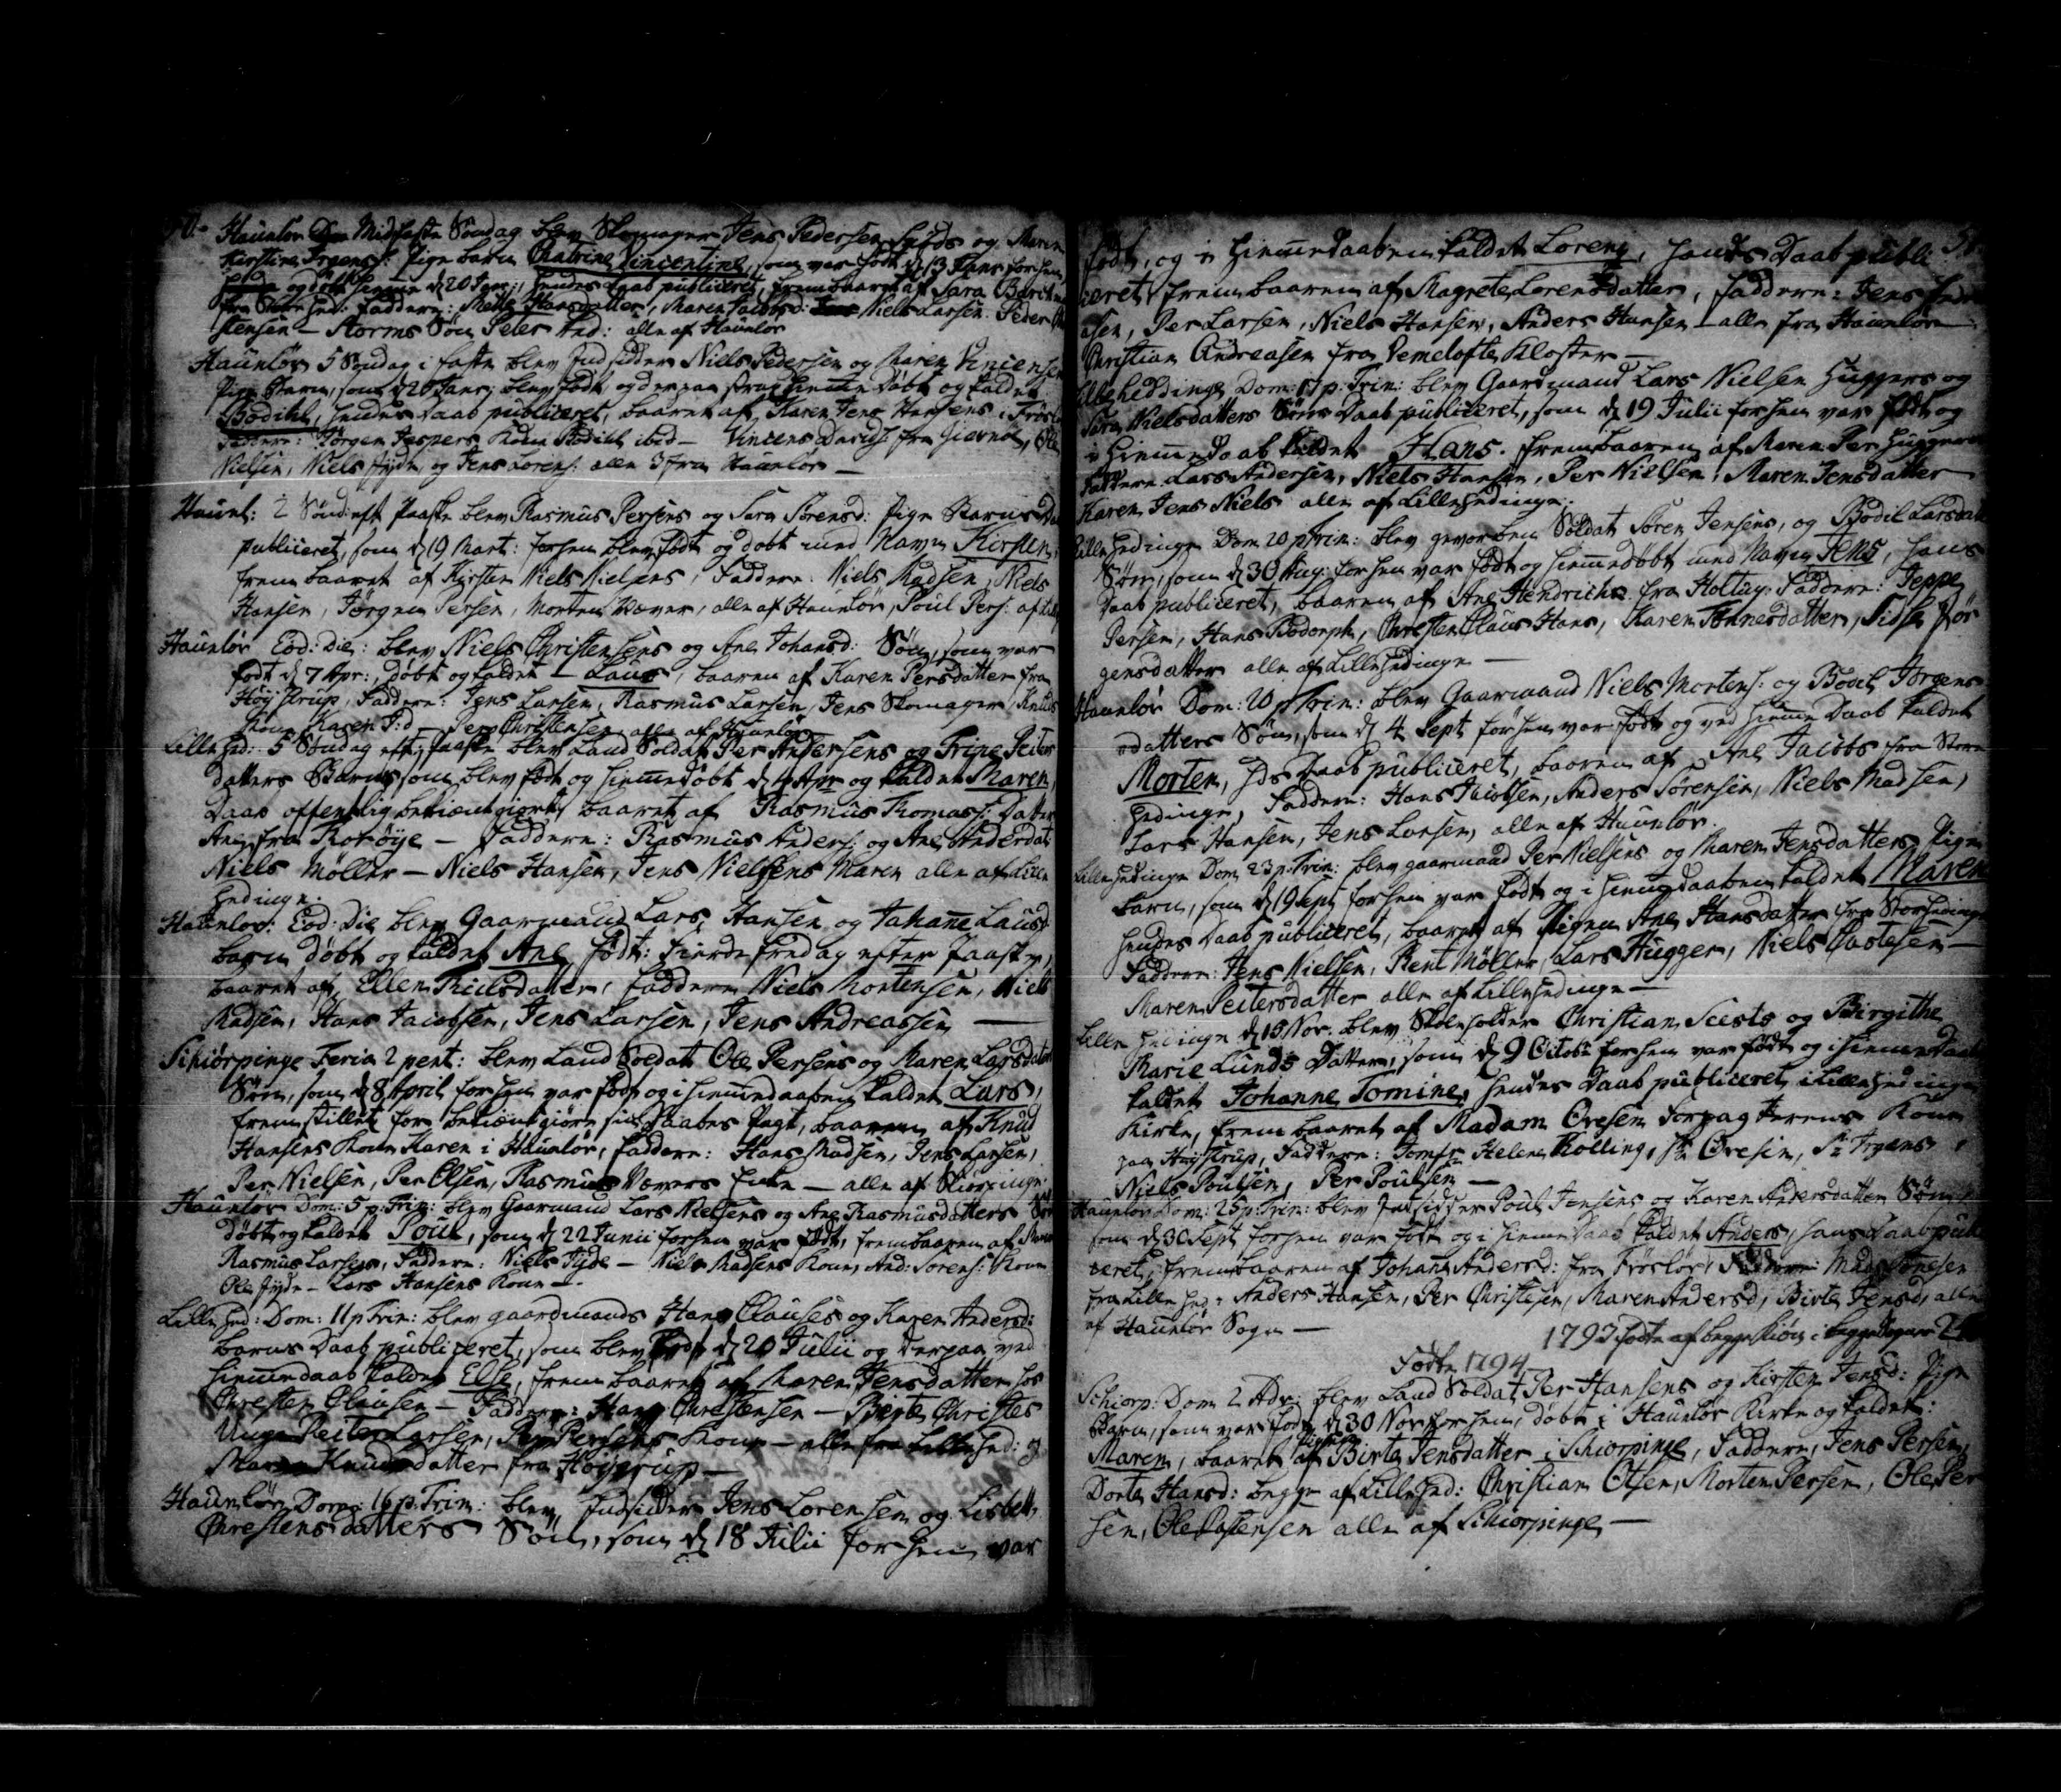 Haunløv Midfaste Søndag blev Skomager Jens Pedersen og Maren
Kirstine Jrgens: Pige barn Chatrine Vincentine, som var født d 13 Janr forhen
og døbt hiemme d 20 Janr:, hendes Daab publiceret, frembaaret af Sara
fra Storehed: Faddere: Mette Hansdatter, Maren Jacobsd: Niels Larsen. Peder
stensen — Storms Søn Peter And: alle af Haunløv
Haunløv 5 Søndag i faste blev Indsidder Niels Pedersen og Maren Vincens
Pige Barn, som d 20 Janr: blev født og derpaa strax hiemme døbt og kaldet
Bodihl, hendes Daab publiceret, baaret af Karen Jens Hansens i Frøsløv
Faddere: Jørgen Jespers Kone Bodihl ibid — Vincens Davids: fra Gievnøe, Ole
Nielsen, Niels Jyde og Jens Lorens: alle 3 fra Haunløv —
Haunl: 2 Sønd: eft Paaske blev Rasmus Persens og Sara Sørensd: Pige Barns
publiceret, som d 19 Mart: forhen blev født og døbt med Navn Kirsten,
frembaaret af Kirsten Niels Nielsens, Faddere: Niels Madsen, Niels
Hansen, Jørgen Persen, Morten Væver, alle af Haunløv, Poul Pers: af
Haunløv Eod: Die: blev Niels Christensens og Ane Johansd: Søn, som var
født d 7 Apr:, døbt og kaldet — Laus, baaren af Karen Persdatter fra
Høystrup, Faddere: Jens Larsen, Rasmus Larsen, Jens Skomager, Knuds
Kone Karen P:d — Per Christensen alle af Haunløv
Lillehed: 5 Søndag eft: Paaske blev Land Soldat Per Andersens og Trine Peiters
datters Barns, som blev født og hiemmedøbt d 4 Apr og kaldet Maren,
Daab offentlig bekiendtgiort, baaret af Rasmus Thomass: Datter
Ane fra Rorøye — Faddere: Rasmus Anders: og Ane Andersdat
Niels Møller — Niels Hansen, Jens Nielsens Maren alle af Lille
hedinge.
Haunløv: Eod: Die blev Gaarmand Lars Hansen og Johanne Lausd
barn døbt og kaldet Ane, født: Fierde Fredag efter Paaske,
baaret af Ellen Thielsdatter, Faddere Niels Mortensen, Niels
Madsen, Hans Jacobsen, Jens Larsen, Jens Andreassen —
Schiørpinge Feria 2 pent: blev Land Soldat Ole Persens og Maren Larsdatters
Søn, som d 8 April forhen var født og i hiemmedaaben kaldet Lars,
fremstillet for bekiendtgiøre sin Daabes Pagt, baaren af Knud
Hansens Kone Karen i Haunløv, Faddere: Hans Madsen, Jens Larsen,
Per Nielsen, Per Olsen, Rasmus Vævers Enke — alle af Skiørpinge.
Haunløv Dom: 5 p: Trin: blev Gaarmand Lars Nielsens og Ane Rasmusdatters Søn
døbt og kaldet Poul, som d 22 Junii forhen var født, frembaaren af
Rasmus Larsens, Faddere: Niels Jyde — Niels Madsens Kone, And: Sorens: Kone
Ole Jyde — Lars Hansens Kone —
Lillehed: Dom: 11 p Trin: blev gaardmands Hans Clauses og Karen Andersd:
barns Daab publiceret, som blev født d 20 Julii og derpaa ved
hiemmedaab kaldet Else, frembaaret af Maren Jensdatter hos
Christen Clausen — Faddere: Hans Christensen — Berte Christes
Unge Peiter Larsen, Per Persens Kone — alle fra Lillehed: og
Maren Knudsdatter fra Høyerup —
Haunløv Dom: 16 p: Trin: blev Indsidder Jens Lorensen og Lisbeth
Christensdatters Søn, som d 18 Julii forhen var
født, og i hiemmedaaben kaldet Lorens, hands Daab publi
ceret, frembaaren af Magrete Lorensdatter, Faddere: Jens
sen, Per Larsen, Niels Hansen, Anders Hansen — alle fra Haunløv —
Christian Andreasen fra Vemetofte Kloster —
Lilleheddinge Dom: 17 p: Trin: blev Gaardmand Lars Nielsen Huggers og
Sara Nielsdatters Søns Daab publiceret, som d 19 Julii forhen var født og
i hiemmedaab kaldet Hans. frembaaren af Maren Per Huggers
Faddere Lars Andersen, Niels Hansen, Per Nielsen, Maren Jensdatter
Karen Jens Niels alle af Lillehedinge.
Lillehedinge Dom 20 p Trin: blev geworben Soldat Søren Jensens, og Bodil Larsdat
Søn, som d 30 Aug: forhen var født og hiemmedøbt med Navn Jens, hans
Daab publiceret, baaren af Ane Hendrichs: fra Holtug. Faddere: Jeppe
Persen, Hans Bodorph, Christen Claus Hans, Karen Tønnesdatter, Sidse Jør
gensdatter alle af Lillehedinge —
Haunløv Dom: 20 p Trin: blev Gaarmand Niels Mortens: og Bodel Jørgens
datters Søn, som d 4 Sept forhen var født og ved hiemme Daab kaldet
Morten, hds Daab publiceret, baaren af Ane Jacobs fra Store
hedinge, Faddere: Hans Jacobsen, Anders Sørensen, Niels Madsen,
Lars Hansen, Jens Larsen, alle af Haunløv.
Lillehedinge Dom 23 p: Trin: blev gaarmand Per Nielsens og Maren Jensdatters Pige
barn, som d 19 Sept forhen var født og i hiemmedaaben kaldet Maren
hendes Daab publiceret, baaret af Pigen Ane Hansdatter fra Storehedinge
Faddere: Jens Nielsen, Bent Møller, Lars Hugger, Niels Castesen —
Maren Peitersdatter alle af Lillehedinge —
Lille hedinge d 15 Nov: blev Skoleholder Christian Seests og Birgithe
Marie Lunds Datter, som d 9 Octobr forhen var født og i hiemmedaab
kaldet Johanne Tomine, hendes Daab publiceret i Lillehedinge
Kirke, frembaaret af Madam Øvesen Forpagterens Kone
paa Høystrup, Faddere: Jomfr Helene Kolling, Sr Øvesen, Sr Jrgens,
Niels Poulsen, Per Poulsen —
Haunløv Dom: 25 p: Trin: blev Indsidder Poul Jensens og Karen Andersdatters Søn,
som d 30 Sept forhen var født og i hiemmedaab kaldet Anders, hans Daab publi
ceret, frembaaren af Johan Andersd: fra Frøsløv, Faddere: Mads Tønesen
fra Lillehed: Anders Hansen, Per Christesen, Maren Andersd, Birte Jensd, alle
af Haunløv Sogn —
1793 fødte af begge Kiøn i begge Sogner
Fødte 1794
Schiorp: Dom 2 Adv: blev Land Soldat Per Hansens og Kirsten Jensd: Pige
Barn, som var født d 30 Nov forhen, døbt i Haunløv Kirke og kaldet:
Maren, baaret af Pigen Birte Jensdatter i Schiorpinge, Faddere, Jens Persen,
Dorte Hansd: begge af Lillehed: Christian Olsen, Morten Persen, Ole Per
sen, Ole Castensen alle af Schiorpinge —